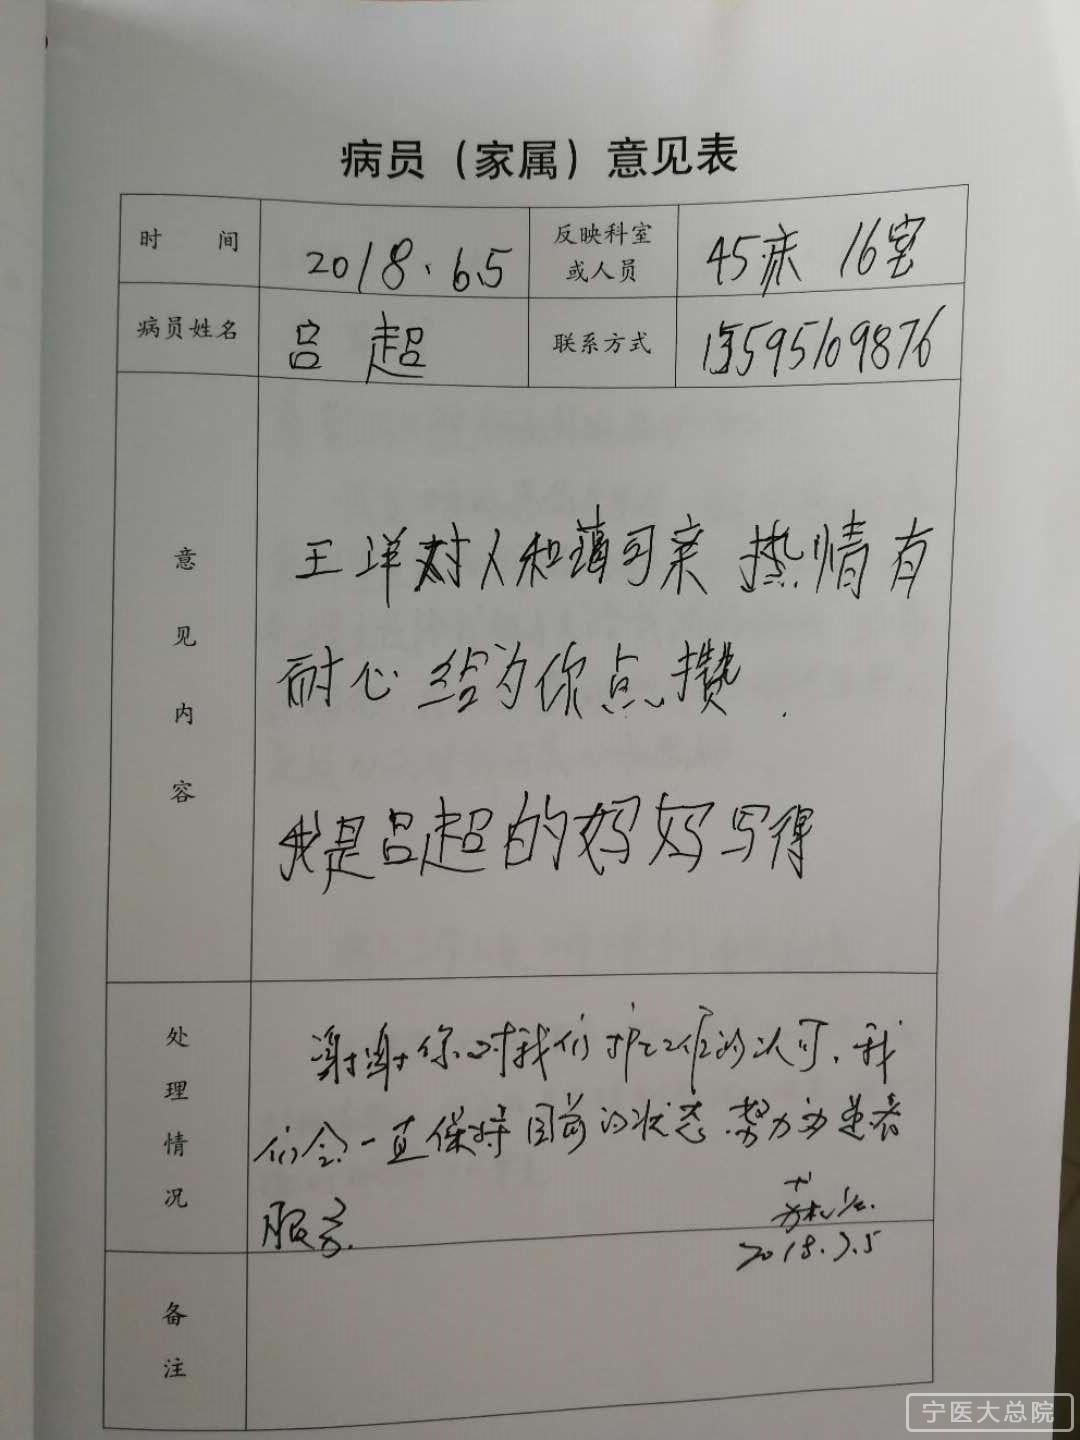 病员（家属）意见表
时间 2018.6.5 反映科室或人员 45床 16室
病员姓名 吕超 联系方式 13595109876
意见内容
王洋对人和蔼可亲 热情有
耐心 给为你点赞.
我是吕超的妈妈写得
处理情况
谢谢你对我们护工作的认可,我
们会一直保持目前的状态 努力为患者
服务.
2018.7.5
备注
宁医大总院